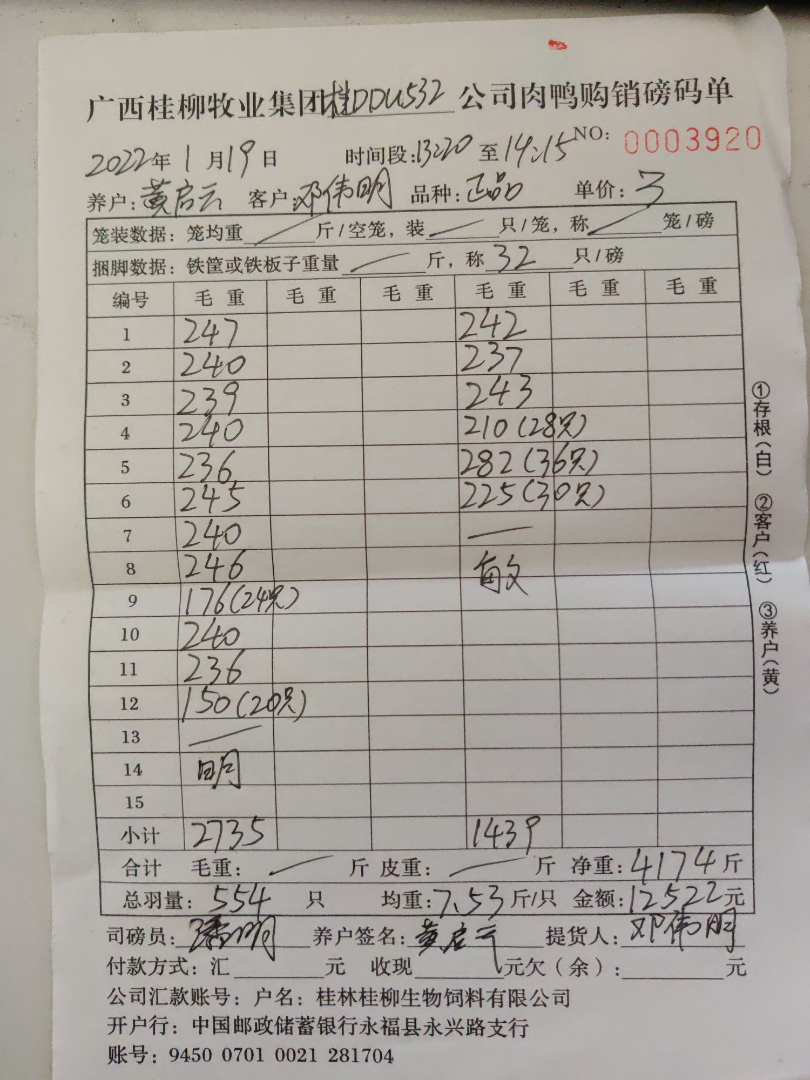 广西桂柳牧业集团桂DDU532公司肉鸭购销磅码单
2022年1月19日 时间段:13:20至14:15 NO: 0003920
养户:黄启云 客户:邓伟明 品种:正品 单价:3
笼装数据:笼均重 斤/空笼,装 只/笼,称 笼/磅
捆脚数据:铁筐或铁板子重量 斤,称 32 只/磅
编号 毛重 毛重 毛重 毛重 毛重 毛重
1 247 242
2 240 237
3 239 243
4 240 210(28只)
5 236 282(36只)
6 245 225(30只)
7 240 —
8 246
9 176(24只)
10 240
11 236
12 150(20只)
13 —
14 明
15
小计 2735 1439
合计 毛重: 斤 皮重: 斤 净重:4174斤
总羽量:554只 均重:7.53斤/只 金额:12522元
司磅员:潘明 养户签名:黄启云 提货人:邓伟明
付款方式:汇 元 收现 元欠(余): 元
公司汇款账号:户名:桂林桂柳生物饲料有限公司
开户行:中国邮政储蓄银行永福县永兴路支行
账号:9450 0701 0021 281704
①存根(白) ②客户(红) ③养户(黄)